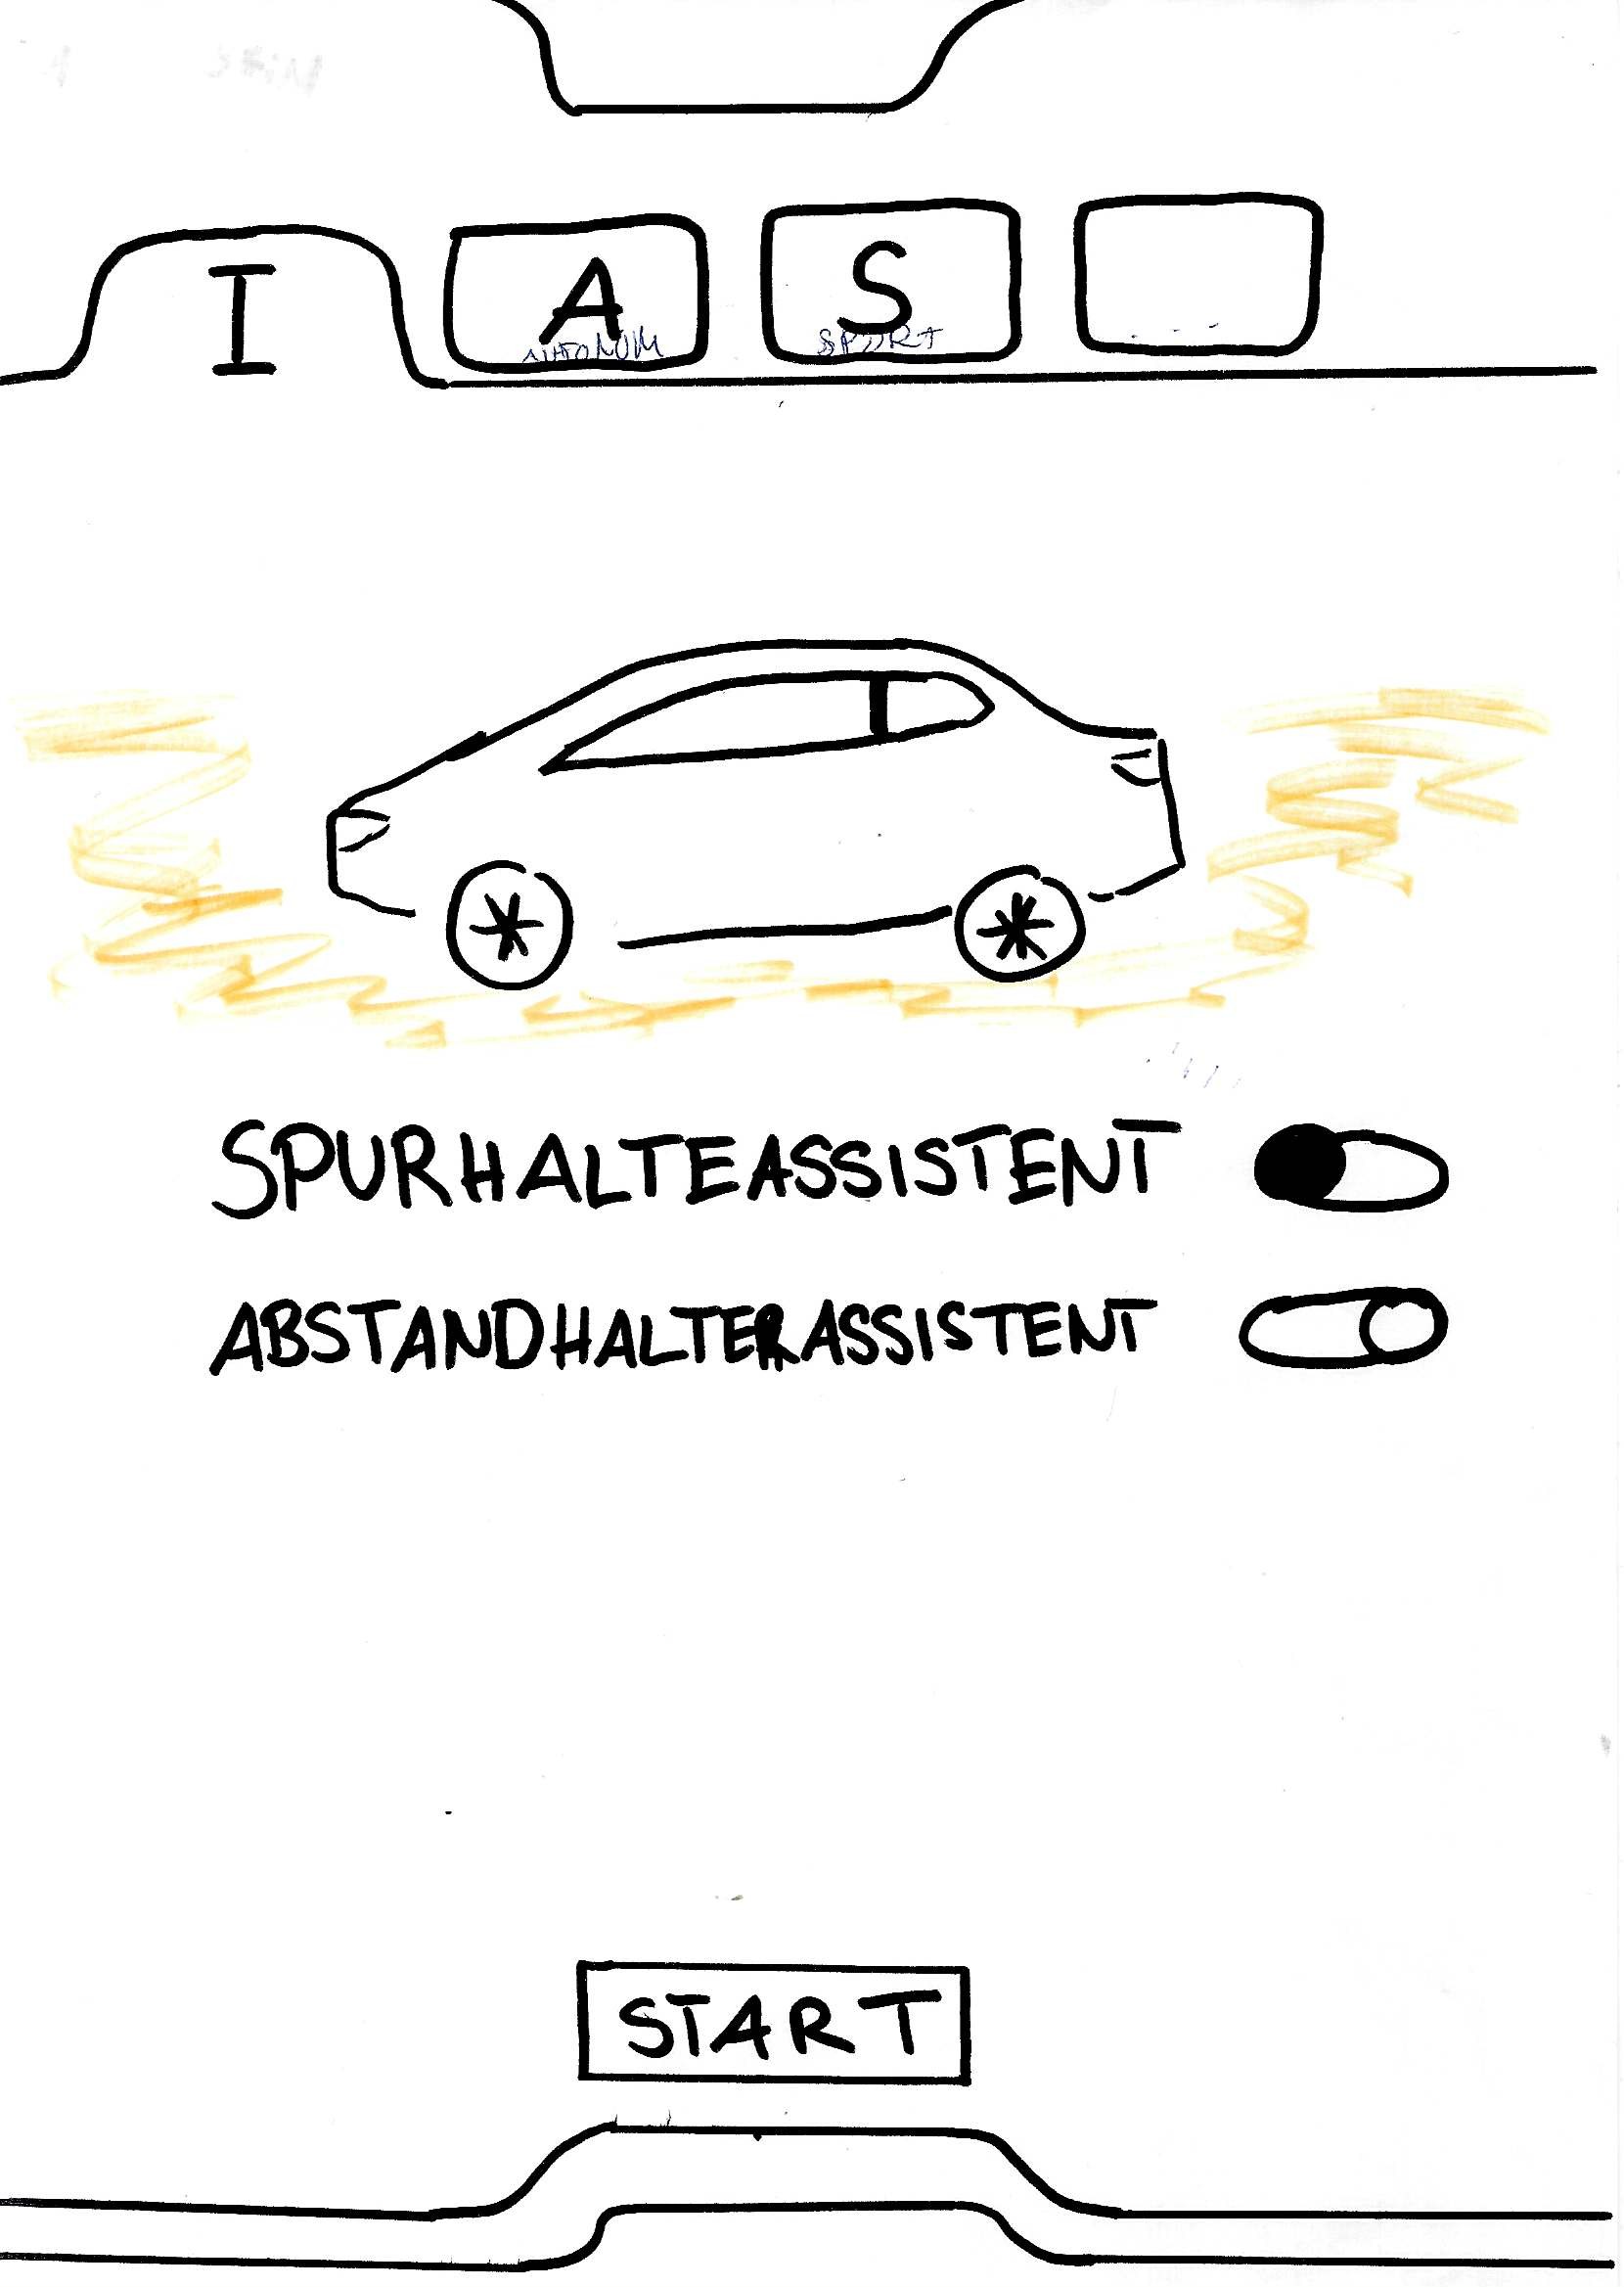 I A S
AUTONOM SPORT
SPURHALTEASSISTENT
ABSTANDHALTERASSISTENT
START